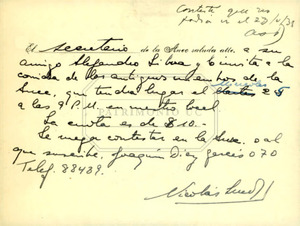 Contesté que no
podía ir el 27/4/39
El secretario de la Anec saluda atte. a su
amigo Alejandro Silva y lo invita a la
comida de los antiguos miembros de la
Anec, que tendrá lugar el Martes 25
a las 9 P.M. en nuestro local
La cuota es de $10.-
Se ruega contestar en la Anec o al
que suscribe, Joaquín Díaz Garcés 070
Teléf. 88489.